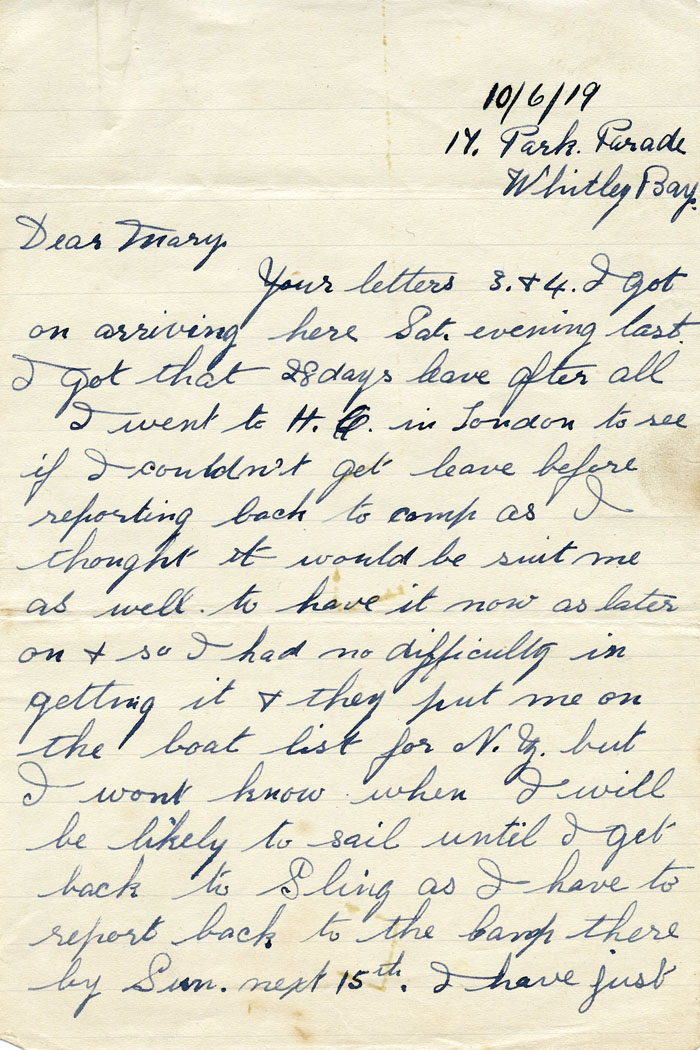 10/6/19
17. Park. Parade
Whitley Bay.
Dear Mary.
Your letters 3. & 4. I got
on arriving here Sat. evening last.
I got that 28 days leave after all
I went to H. Q. in London to see
if I couldn't get leave before
reporting back to camp as I
thought it would be suit me
as well. to have it now as later
on & so I had no difficulty in
getting it & they put me on
the boat list for N. Z. but
I wont know when I will
be likely to sail until I get
back to Sling as I have to
report back to the camp there
by Sun. next 15th. I have just